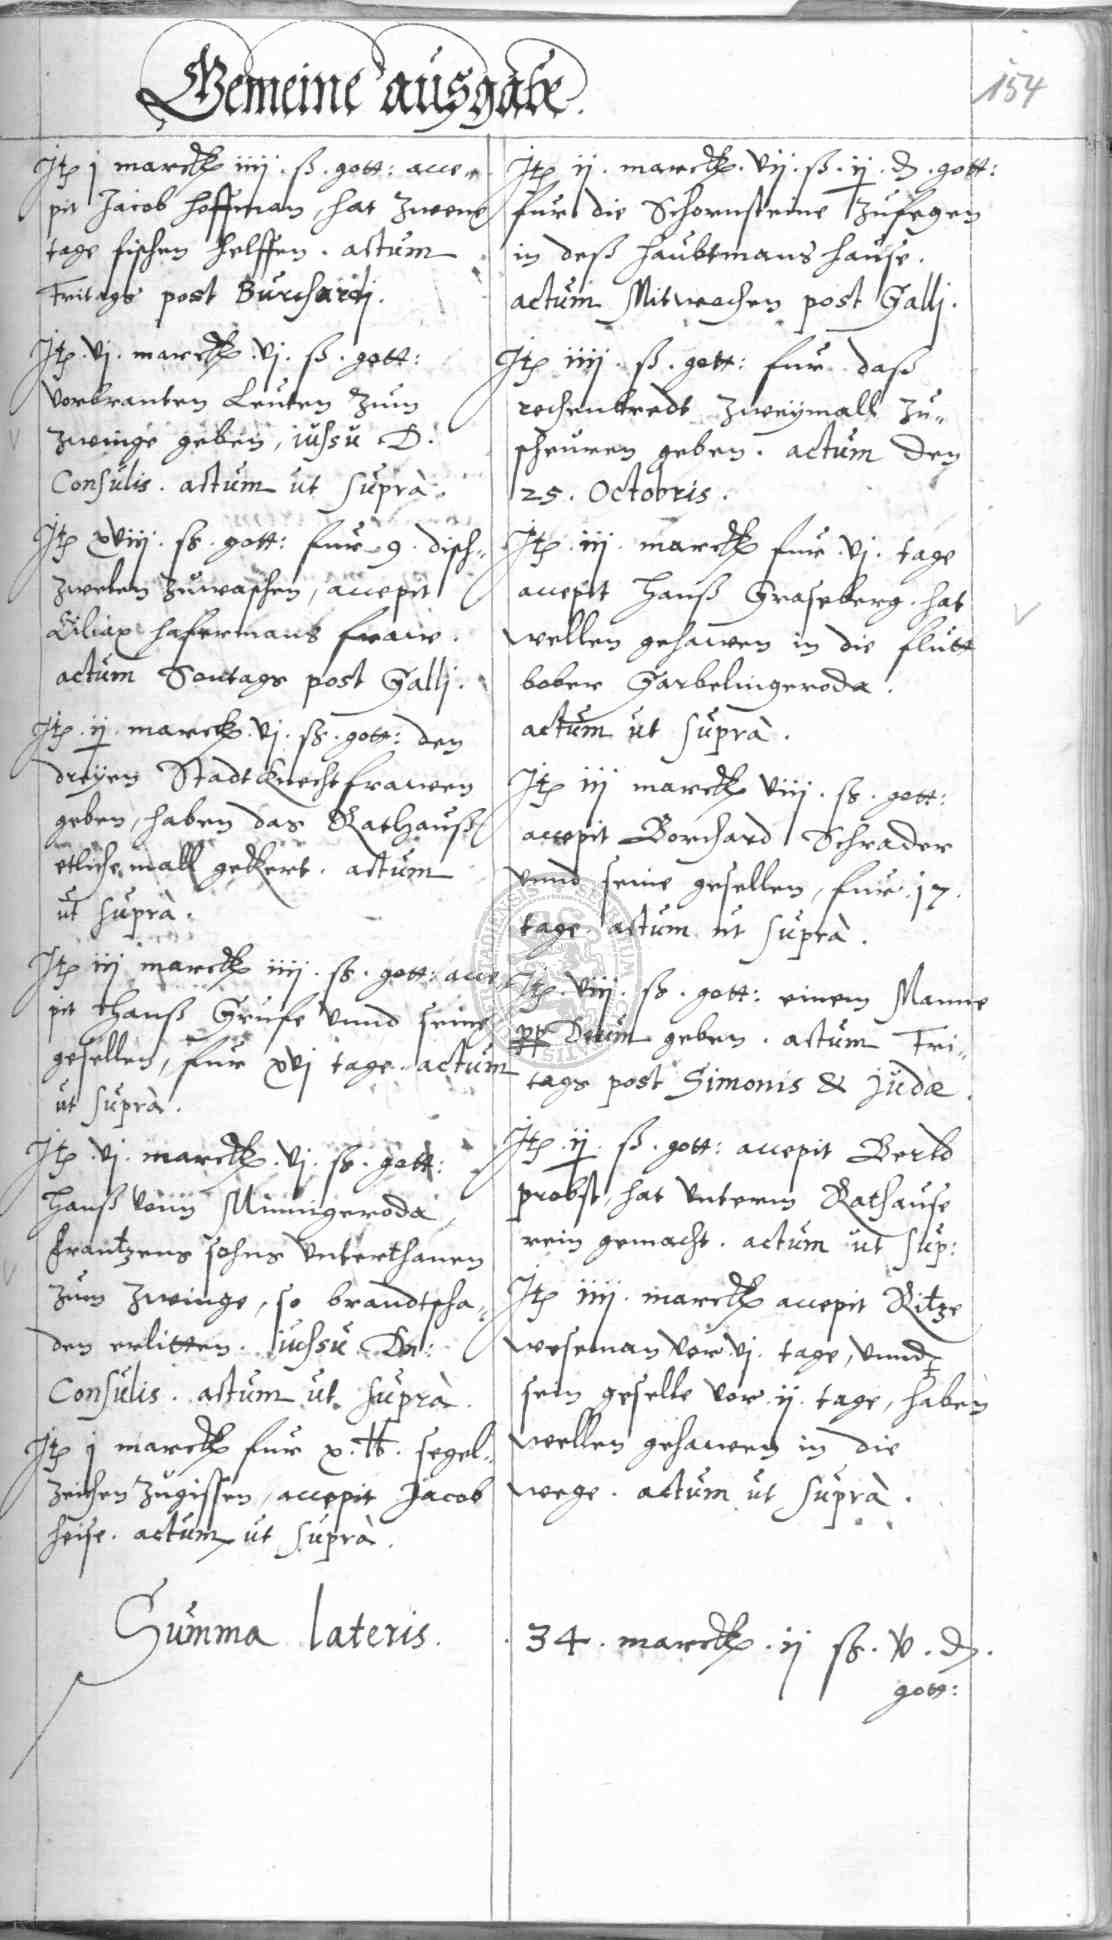 Gemeine ausgabe.
154
Jtem j marck iiij. ß. gott: acce,,
pit Jacob Hoffman, hat zwene
tage fischen helffen. actum
Fritags post Burchardj.
Jtem. vj. marck vj. ß. gott:
vorbranten Leuten zum
zwinge geben, iussu D.
Consulis. actum ut suprà.
Jtem xviij. ß. gott: fur 9. disch,,
zwelen zuwaschen, accepit
Ciliax Hafermans fraw.
actum Sontags post Gallj.
Jtem. ij. marck. vj. ß. gott: den
dreyen Stadtknecht frawen
geben, haben das Rathauß
etliche mall gekert. actum
ut suprà.
Jtem iij marck iiij. ß. gott: acce
pit Hanß Grufe vnnd seine
gesellen, fur xvj tage. actum
ut suprà.
Jtem. vj. marck. vj. ß. gott:
Hanß vonn Minnigeroda,
Frantzens sohns vnterthanen
zum zwinge, so brandtscha,,
den erlitten. iussu Dn:
Consulis. actum ut suprà.
Jtem j marck fur x. ℔. segel,,
zeichen zugissen, accepit Jacob
Heise. actum ut suprà.
Jtem ij. marck. vij. ß. ij. ₰. gott:
fur die Schornsteine zufegen
in deß Haubtmans Hause.
actum Mitwochen post Gallj.
Jtem iiij. ß. gott: fur daß
rechenbredt zweymall zu,,
scheuren geben. actum den
25. Octobris.
Jtem. iij. marck fur. vj. tage
accepit Hanß Graseberg. hat
wellen gehawen in die flutt
bober Garbelingeroda.
actum ut suprà.
Jtem iij marck viij. ß. gott:
accepit Borchard Schrader
vnnd seine gesellen, fur. 17.
tage. actum ut suprà.
Jtem. viij. ß. gott: einem Manne
ppter Deum geben. actum Fri,,
tags post Simonis & Judae.
Jtem. ij. ß. gott: accepit Berld
probst, hat vnterm Rathause
rein gemacht. actum ut sup:
Jtem iiij. marck accepit Ritze
weseman vor. vj. tage, vnnd
sein geselle vor ij. tage, haben
wellen gehawen in die
wege. actum ut suprà.
Summa lateris.
34. marck. ij ß. v. ₰.
gott: